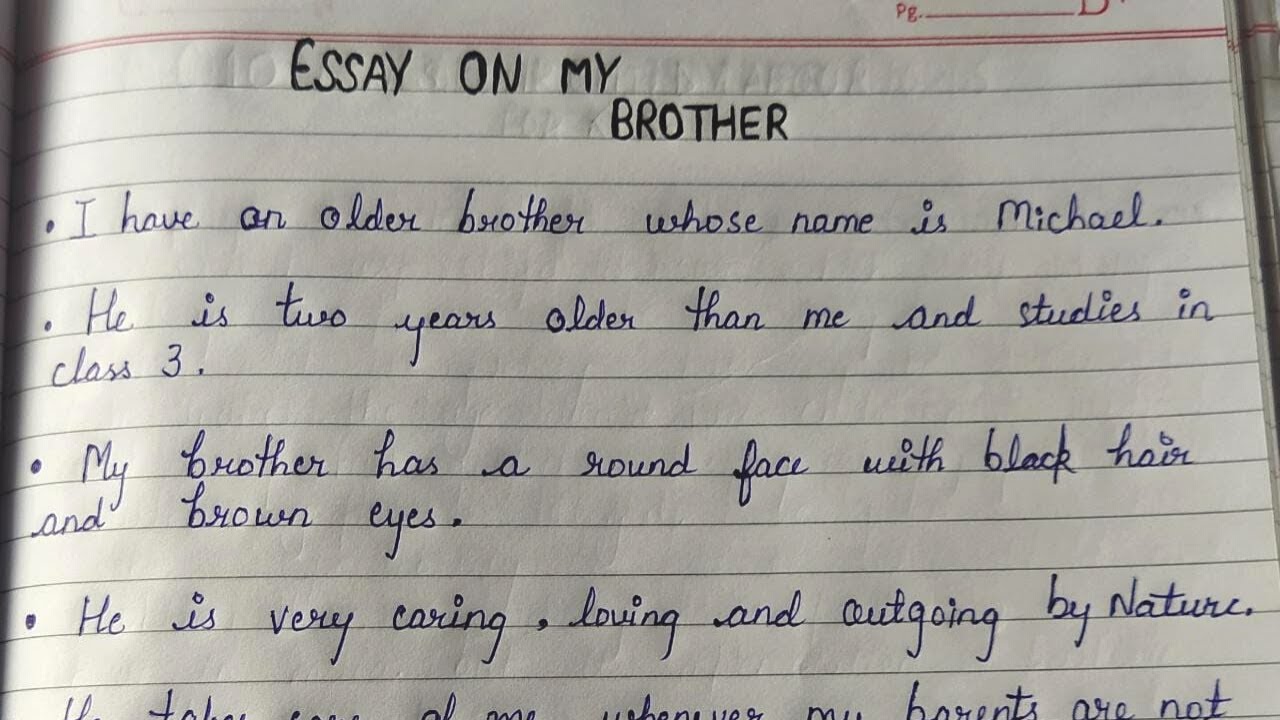 Pg.
ESSAY ON MY
BROTHER
• I have an older brother whose name is Michael.
• He is two years older than me and studies in
class 3.
• My brother has a round face with black hair
and brown eyes.
• He is very caring, loving and outgoing by Nature.
He takes care of me whenever my parents are not